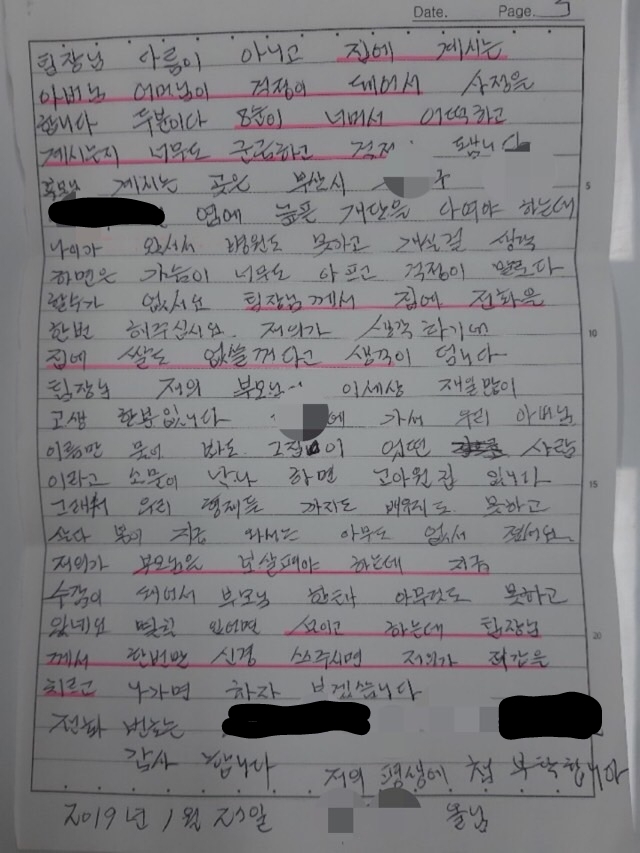 Date. Page. 3
팀장님 다름이 아니고 집에 계시는
아버님 어머님이 걱정이 돼어서 사정을
합니다 두분이다 8순이 너머서 어떡하고
계시는지 너무도 궁금하고 걱정 됍니다
부모님 계시는 곳은 부산시 구
엽에 높은 개단을 다여야 하는데
나이가 와서서 병원도 못하고 개식걸 생각
하면은 가슴이 너무도 아프고 걱정이 말못다
할수가 없서요 팀장님께서 집에 전화을
한번 해주십시요. 저의가 생각 하기에
10
집에 쌀도 없쓸꺼다고 생각이 덥니다
팀장님 저의 부모님 이세상 재일많이
고생 한분입니다 에 가서 우리 아버님
이름만 물어 바도 그집이 어떤 사람
이라고 소문이 난나 하면 고아원집 입니다
15
그래서 우리 형제들 까지도 배우지도 못하고
살다 봄이 지금 와서는 아무도 없서 졌어요.
저의가 부모님을 보살펴야 하는데 지금
수감이 돼어서 부모님 한태 아무것도 못하고
있네요 몇칠 있어면 설이고 하는데 팀장님
20
께서 한번만 신경 쓰주시면 저의가 죄값을
치르고 나가면 하자 보겠습니다
전화 번호는
감사 합니다
저의 평생에 첨 부탁합니다
2019년 1월 25일
올님